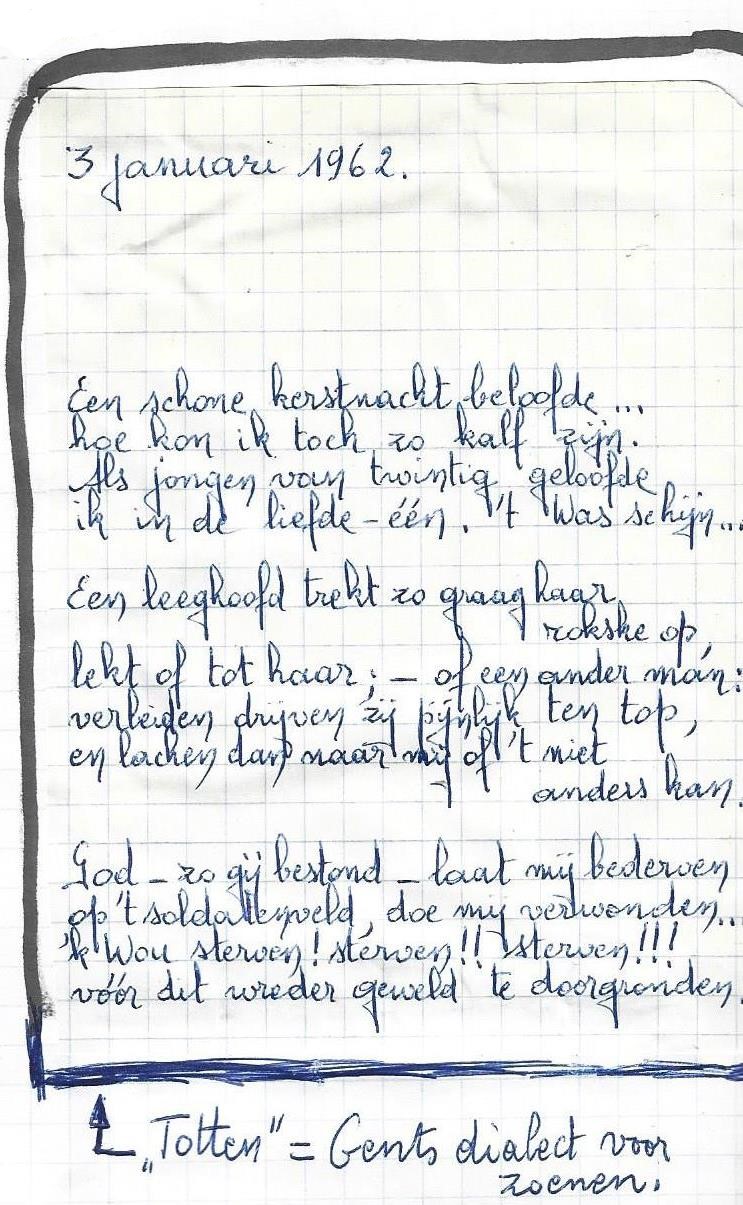 3 januari 1962.
Een schone kerstnacht beloofde...
hoe kon ik toch zo kalf zijn.
Als jongen van twintig geloofde
ik in de liefde-één. 't Was schijn...
Een leeghoofd trekt zo graag haar
rokske op,
lekt of tot haar; – of een ander man:
verleiden drijven zij pijnlijk ten top,
en lachen dan naar mij of 't niet
anders kan.
God – zo gij bestond – laat mij bederven
op 't soldatenveld, doe mij verwonden...
'k Wou sterven! sterven!! sterven!!!
vóór dit wreder geweld te doorgronden.
„Totten" = Gents dialect voor
zoenen.